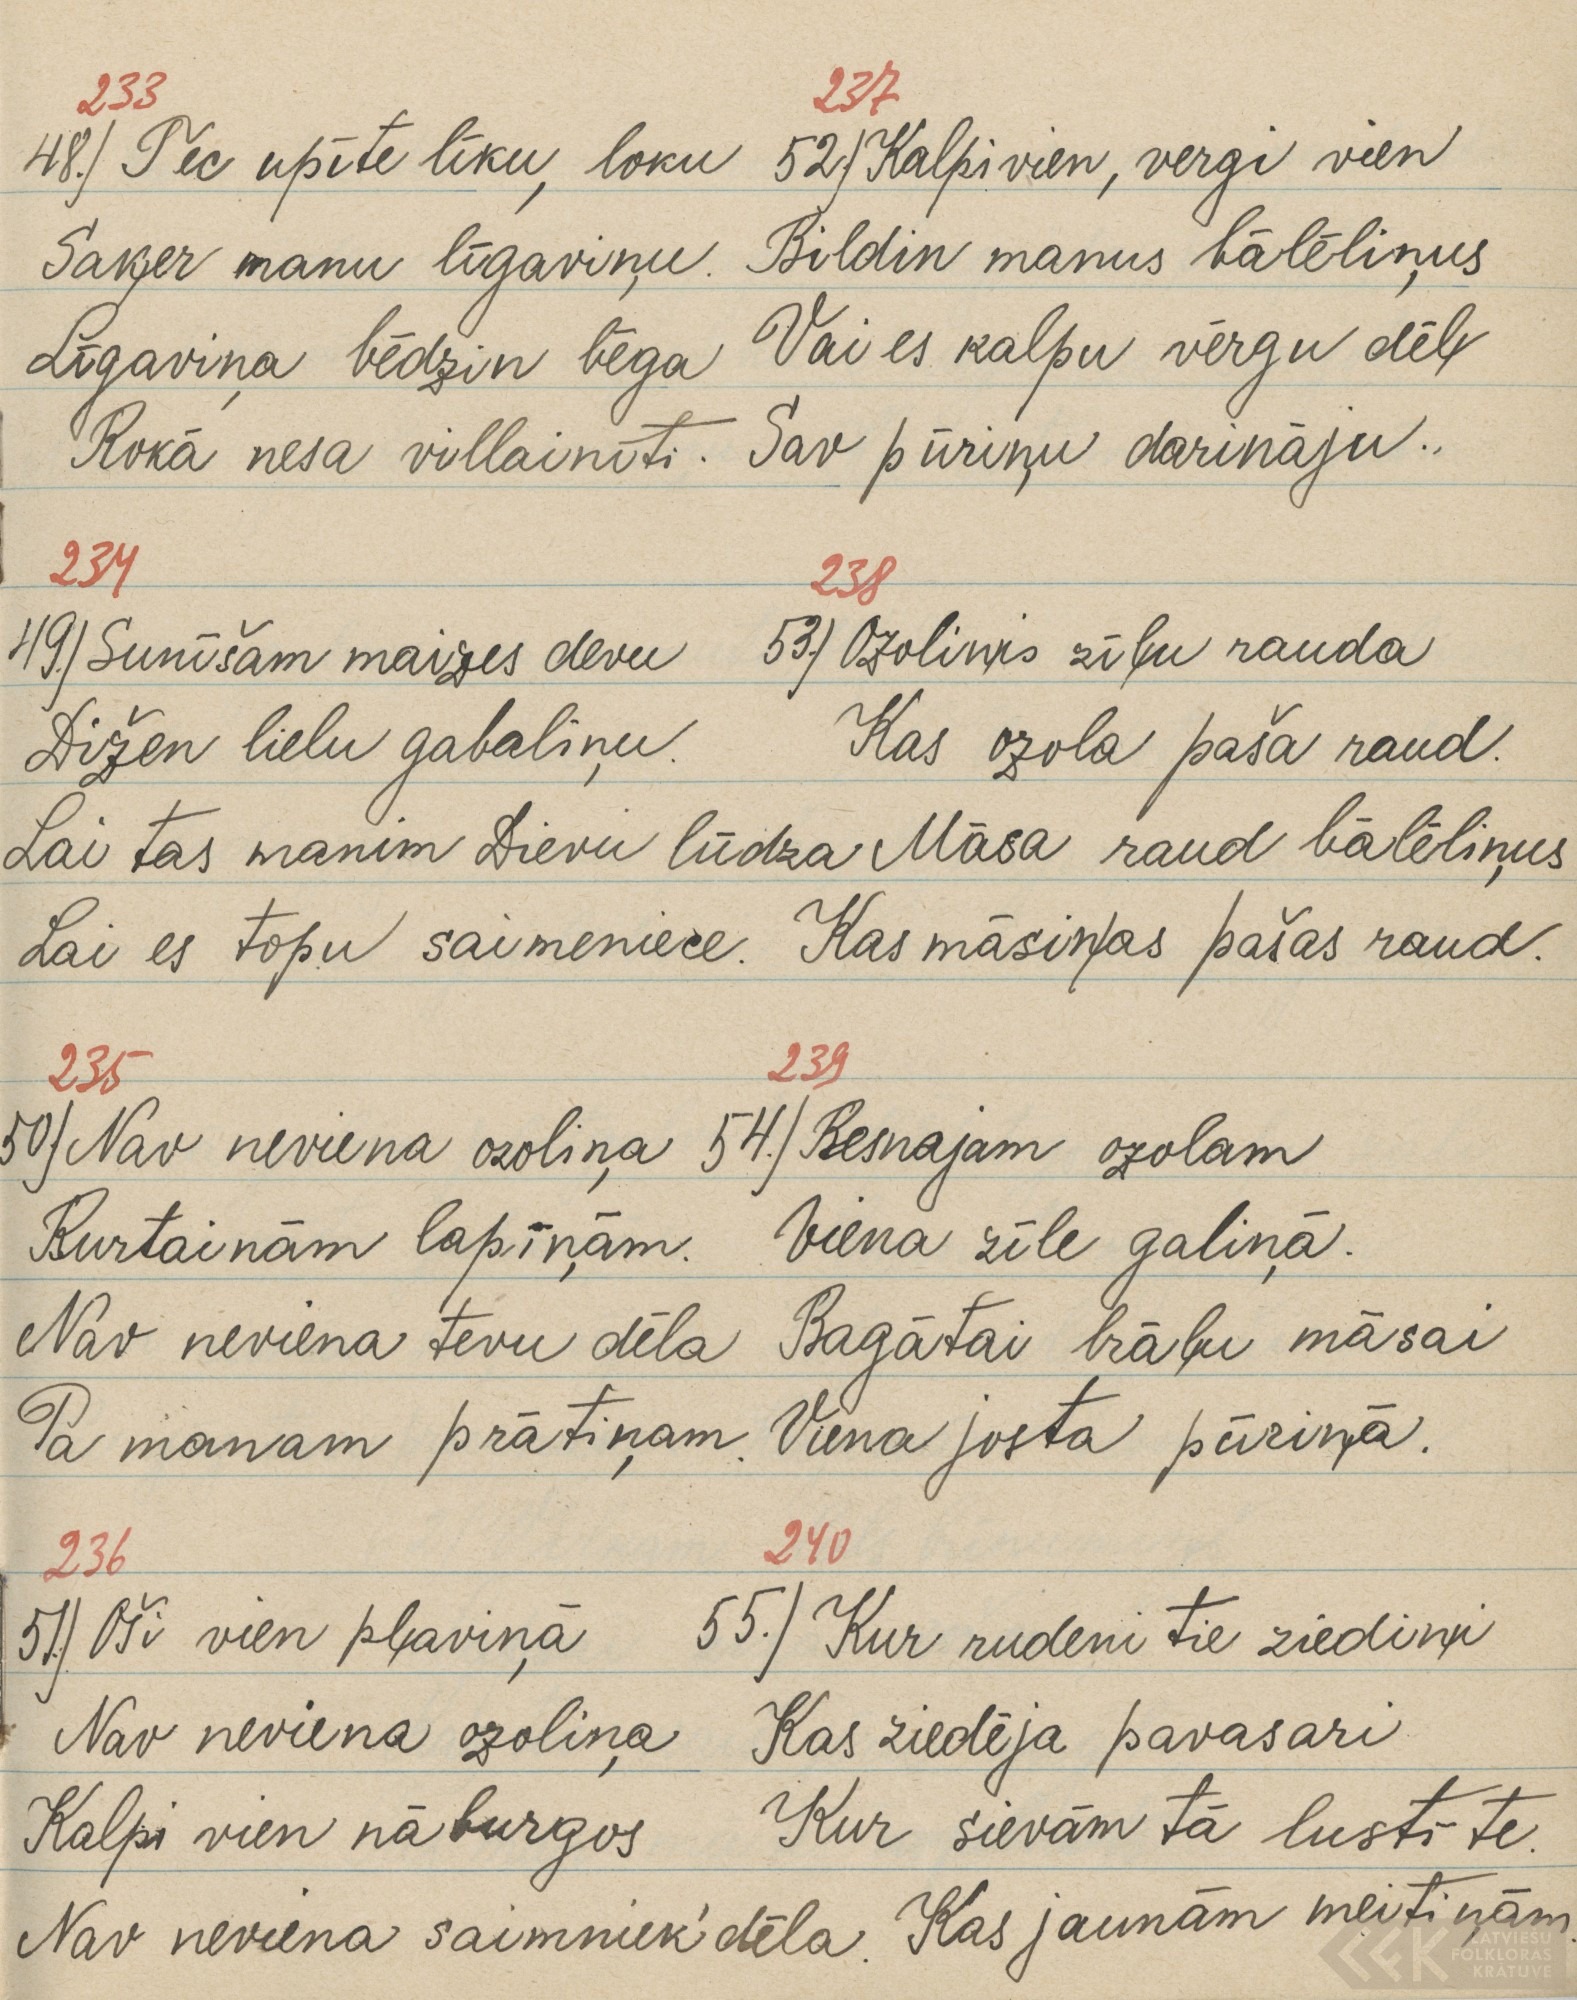 233
48.) Tec upīte līku, loku
Saķer manu līgaviņu.
Līgaviņa bēdzin bēga
Rokā nesa villainīti.
234
49.) Sunīšam maizes devu
Dižen lielu gabaliņu.
Lai tas manim Dievu lūdza
Lai es topu saimeniece.
235
50.) Nav neviena ozoliņa
Kurtainām lapiņām.
Nav neviena tevu dēla
Pa manam prātiņam.
236
51.) Oši vien pļaviņā
Nav neviena ozoliņa
Kalpi vien nāburgos
Nav neviena saimniek' dēla.
237
52.) Kalpi vien, vergi vien
Bildin manus bālēliņus
Vai es kalpu vērgu dēļ
Sav pūriņu darināju..
238
53.) Ozoliņis zīļu rauda
Kas ozola paša raud.
Māsa raud bālēliņus
Kas māsiņas pašas raud.
239
54.) Resnajam ozolam
Viena zīle galiņā.
Bagātai brāļu māsai
Viena josta pūriņā.
240
55.) Kur rudeni tie ziediņi
Kas ziedēja pavasari
Kur sievām tā lustīte.
Kas jaunām meitiņām.
LATVIEŠU
FOLKLORAS
KRĀTUVE